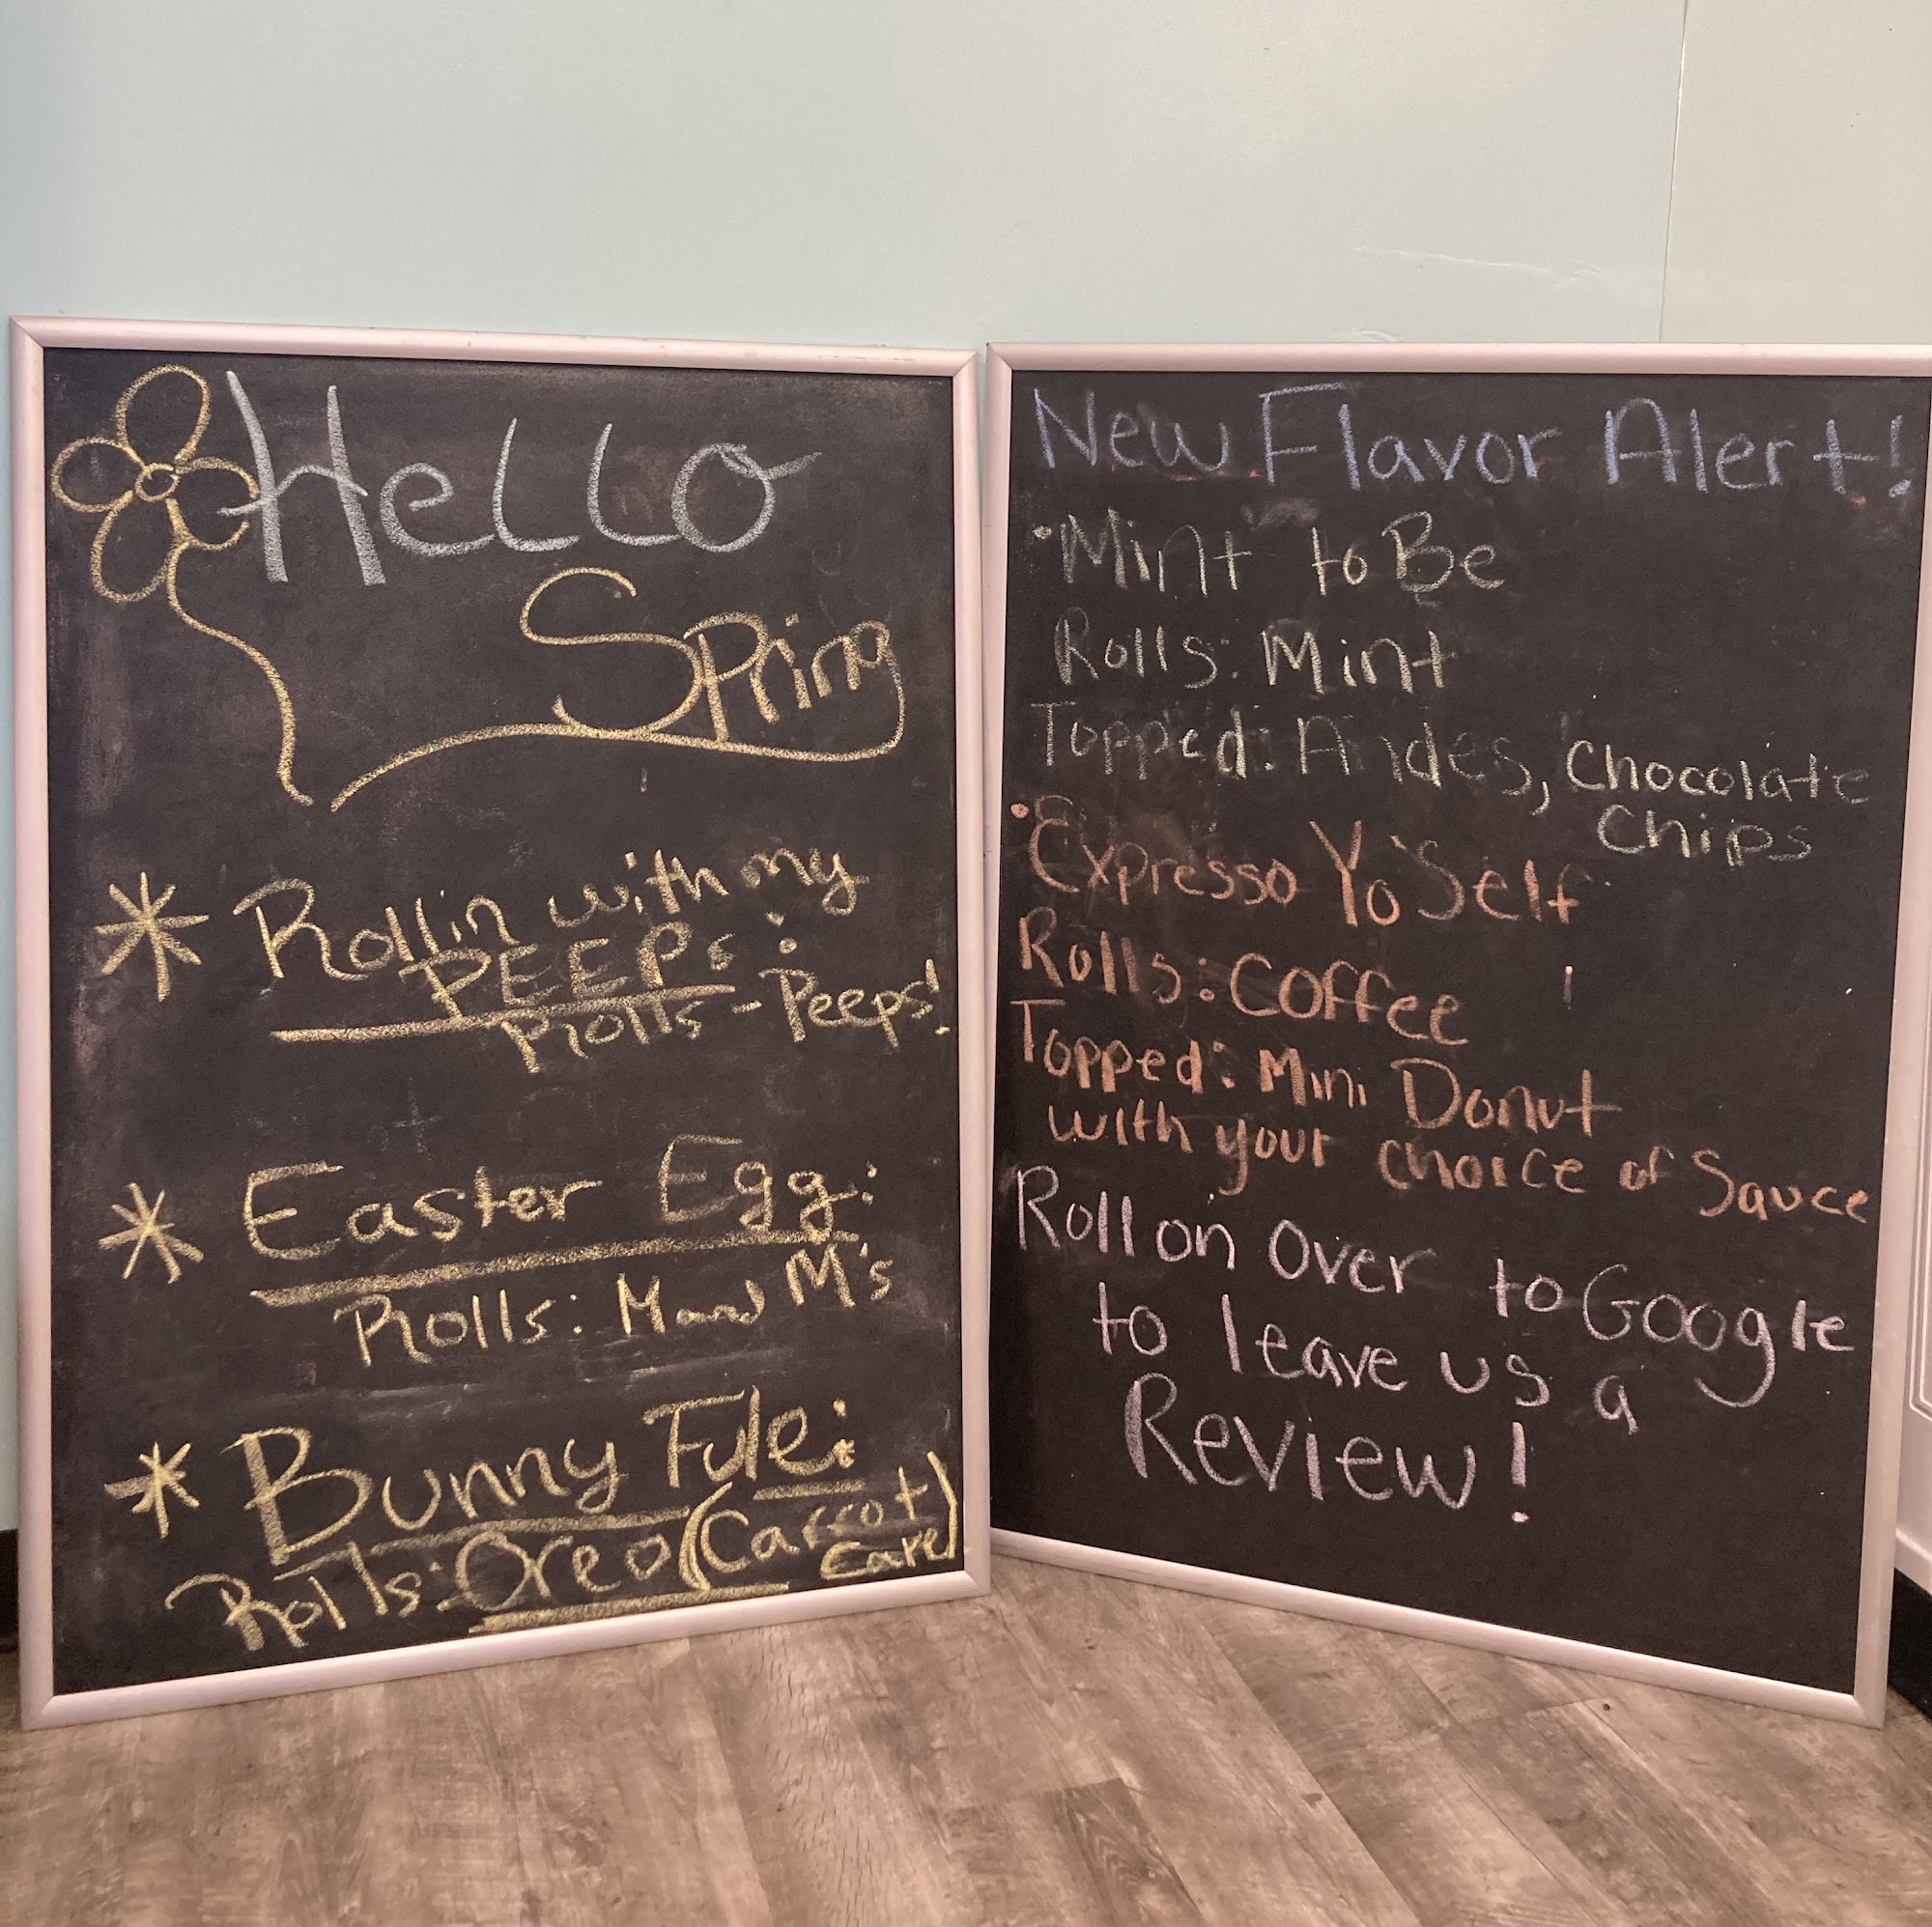 Hello
Spring
Rollin with my
PEEPs:
Rolls - Peeps!
Easter Egg:
Rolls: M and M's
Bunny Fule:
Rolls: Oreo (Carrot
Cake)
New Flavor Alert!
•Mint to Be
Rolls: Mint
Topped: Andes, Chocolate
Chips
•Expresso Yo Self
Rolls: Coffee
Topped: Mini Donut
with your choice of Sauce
Roll on Over to Google
to leave us a
Review!